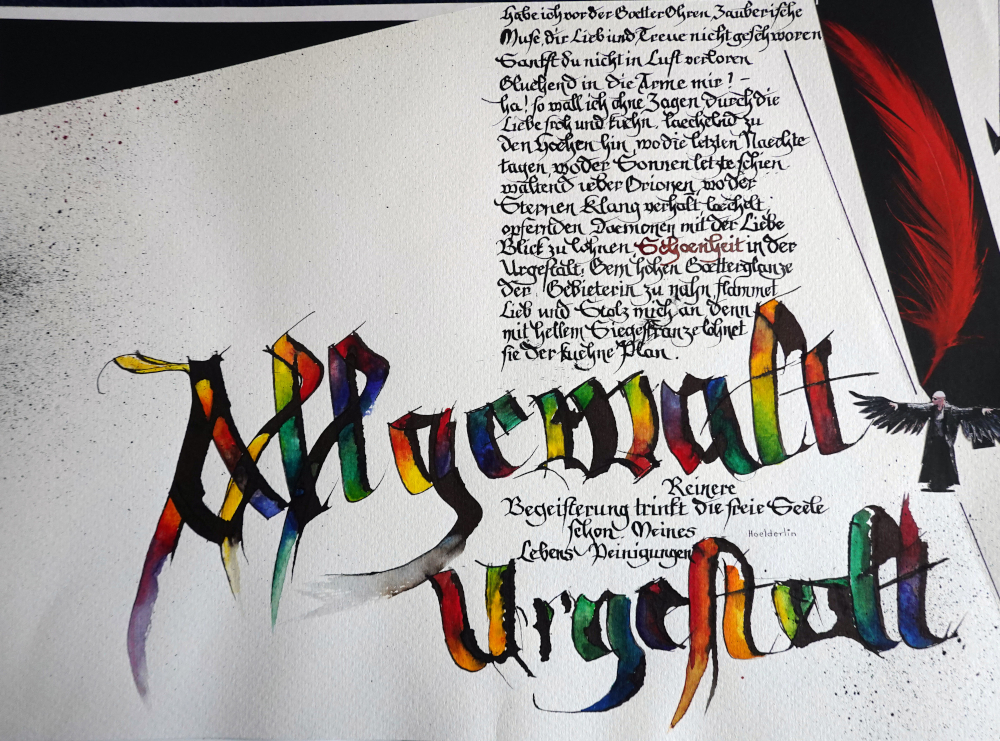 Habe ich vor der Goetter Ohren, Zauberische
Muse, dir Lieb und Treue nicht geschworen
Sankst du nicht in Lust verloren
Gluehend in die Arme mir? –
ha! so wall ich ohne Zagen durch die
Liebe froh und kuehn, laechelnd zu
den Hoehen hin, wo die letzten Naechte
tagen, wo der Sonnen letzte schien
waltend ueber Orionen, wo der
Sternen Klang verhalt laechelt
opfernden Daemonen mit der Liebe
Blick zu lohnen, Schoenheit in der
Urgestalt, Gem hohen Goetterglanze
der Gebieterin zu nahn flammet
Lieb und Stolz mich an, denn
mit hellem Siegeskranze lohnet
sie der kuehne Plan.
Allgewalt
Reinere
Begeisterung trinkt die freie Seele
schon. Meines
Hoelderlin
Lebens Peinigungen
Urgestalt